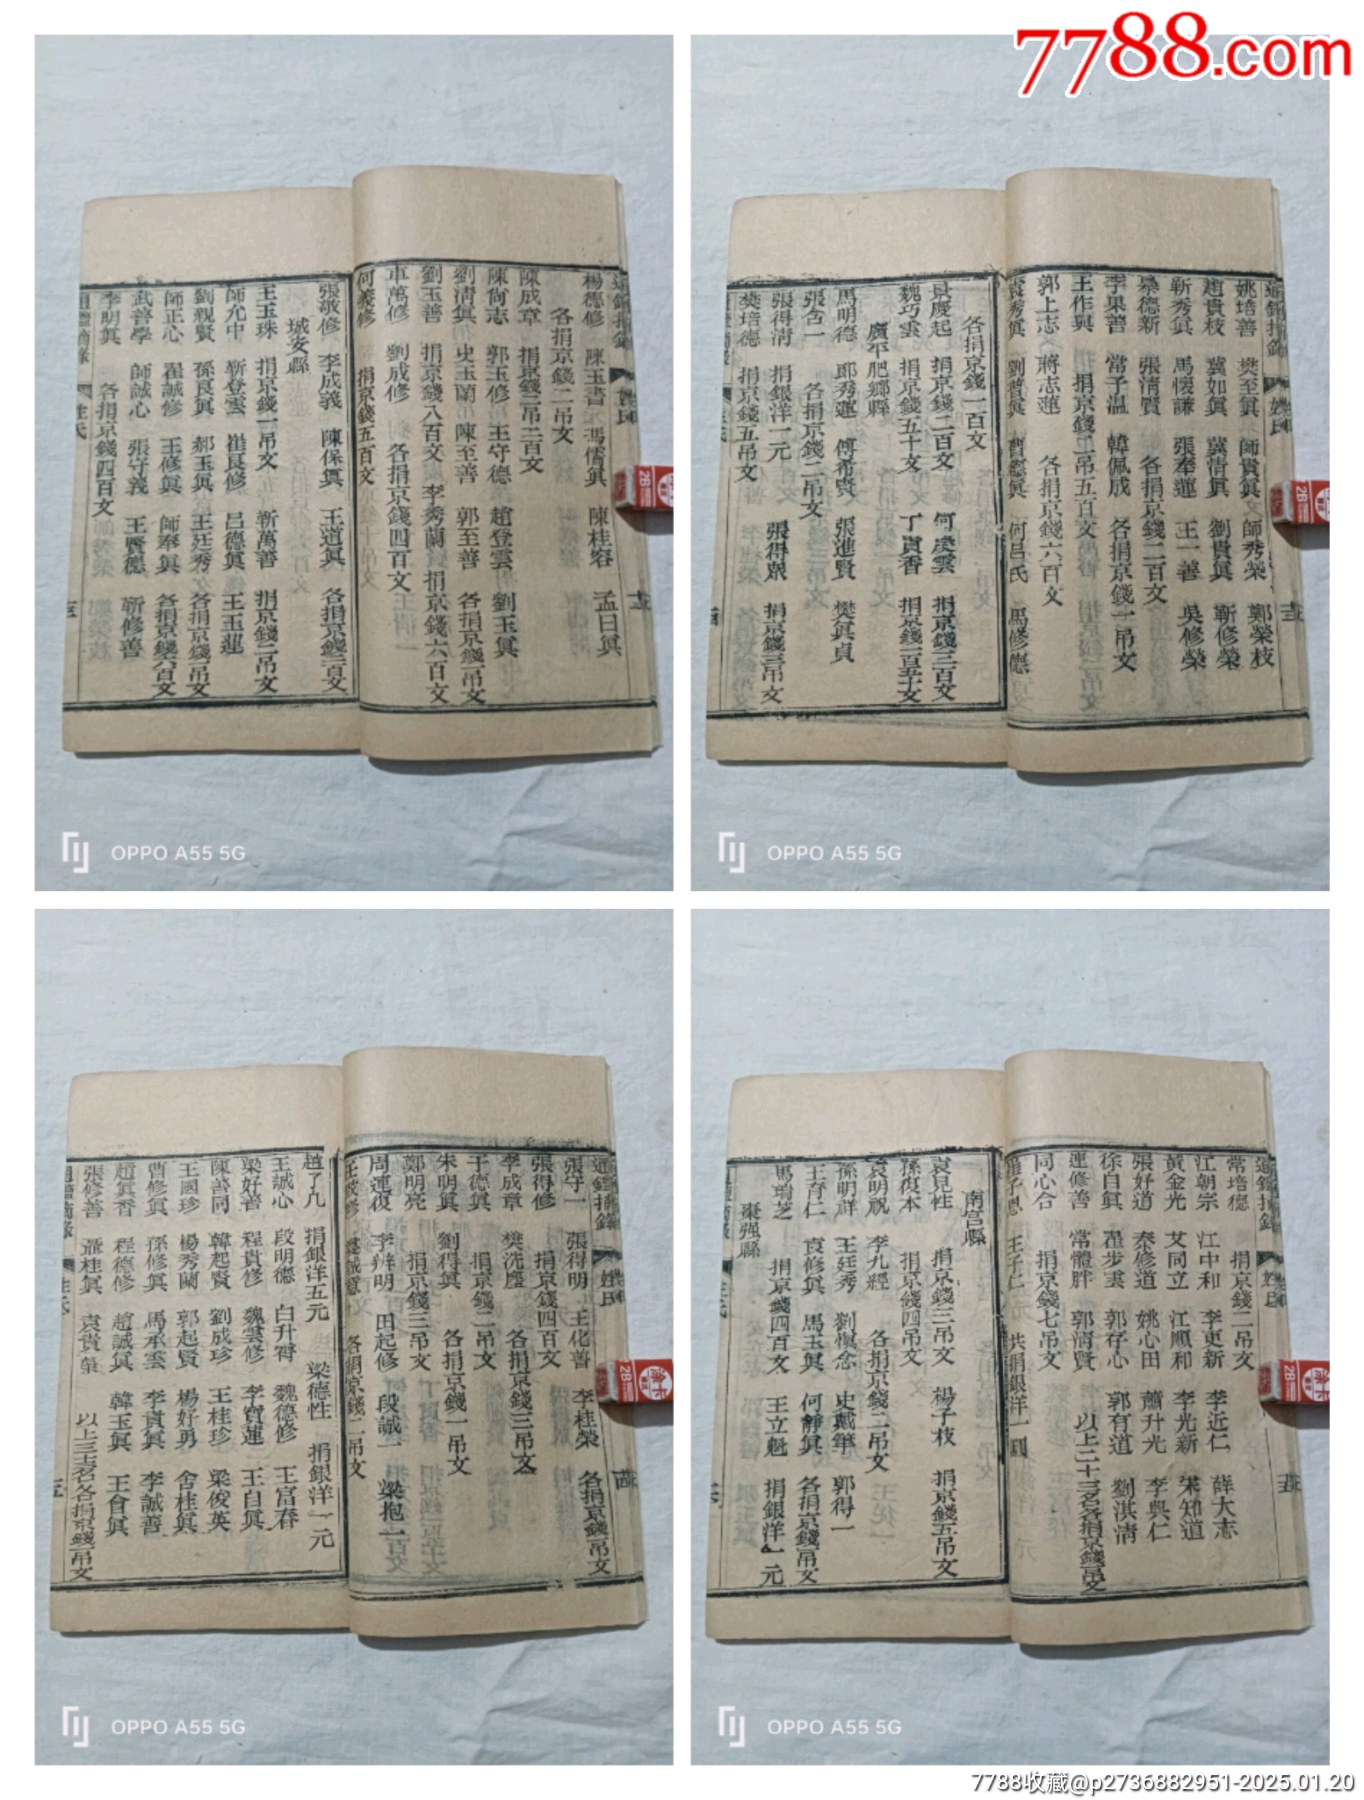 7788.com
楊德修 陳玉書 馮儒眞 陳桂容 孟日眞
各捐京錢二吊文
陳成章 捐京錢二吊二百文
陳尙志 郭玉修 王守德 趙登雲 劉玉眞
劉淸眞 史玉蘭 陳至善 郭至善 各捐京錢一吊文
劉玉善 捐京錢八百文 李秀蘭 捐京錢六百文
車萬修 劉成修 各捐京錢四百文
何義修 捐京錢五百文
張敬修 李成義 陳保眞 王道眞 各捐京錢三百文
城安縣
王玉珠 捐京錢一吊文 靳萬善 捐京錢二吊文
師允中 靳登雲 崔良修 呂德眞 王玉蓮
劉親賢 孫良眞 郝玉眞 王廷秀 各捐京錢一吊文
師正心 翟誠修 王修眞 師奉眞 各捐京錢六百文
武善學 師誠心 張守義 王賢德 靳修善
李明眞 各捐京錢四百文
OPPO A55 5G
姚培善 樊至眞 師貴眞 師秀榮 郭榮枝
趙貴枝 冀如眞 冀淸眞 劉貴眞 靳修榮
靳秀眞 馬懷謙 張奉蓮 王一善 吳修榮
桑德新 張淸賢 各捐京錢二百文
李果善 常子溫 韓佩成 各捐京錢一吊文
王作興 捐京錢二吊五百文
郭上志 蔣志蓮 各捐京錢六百文
袁秀眞 劉哲眞 曹繼眞 何呂氏 馬修德
各捐京錢一百文
魏巧雲 捐京錢五十文 丁貞香 捐京錢一百五十文
廣平肥鄉縣
馬明德 郎秀蓮 傅希賢 張進賢 樊眞貞
張含一 各捐京錢二吊文
張得淸 捐銀洋一元 張得眾 捐京錢三吊文
樊培德 捐京錢五吊文
OPPO A55 5G
張守一 張得明 王化善 李桂榮 各捐京錢一吊文
張得修 捐京錢四百文
李成章 樊洗塵 各捐京錢三吊文
于德眞 捐京錢二吊文
朱明眞 劉得眞 各捐京錢一吊文
鄭明亮 捐京錢三吊文
周連復 李辨明 田起修 段誠一 梁抱一
趙了凡 捐銀洋五元 梁德性 捐銀洋一元
王誠心 段明德 白升霄 魏德修 王富春
梁好善 程貴修 魏雲修 李寶蓮 王自眞
陳善同 韓起賢 劉成珍 王桂珍 梁俊英
王國珍 楊秀蘭 郭起賢 楊好勇 舍桂眞
曹修眞 孫修眞 馬承雲 李貞眞 李誠善
趙眞香 程德修 趙誠眞 韓玉眞 王會眞
張修善 聶桂眞 袁貴榮 以上三十名各捐京錢一吊文
OPPO A55 5G
常培德 捐京錢二吊文
江朝宗 江中和 李更新 李近仁 薛大志
黃金光 艾同立 江順和 李光新 宋知道
張好道 秦修道 姚心田 蕭升光 李興仁
徐自眞 翟步雲 郭存心 郭有道 劉淇淸
連修善 常體胖 郭淸賢 以上二十三名各捐京錢一吊文
同心合 捐京錢七吊文
南宮縣
袁見性 捐京錢三吊文 楊子枝 捐京錢五吊文
孫復本 捐京錢四吊文
袁明祝 李九經 各捐京錢二吊文
孫明祥 王廷秀 劉慎念 史戴筆 郭得一
王育仁 袁修眞 馬玉眞 何靜眞 各捐京錢一吊文
馬瑞芝 捐京錢四百文 王立魁 捐銀洋一元
棗强縣
OPPO A55 5G
7788收藏@p2736882951-2025.01.20